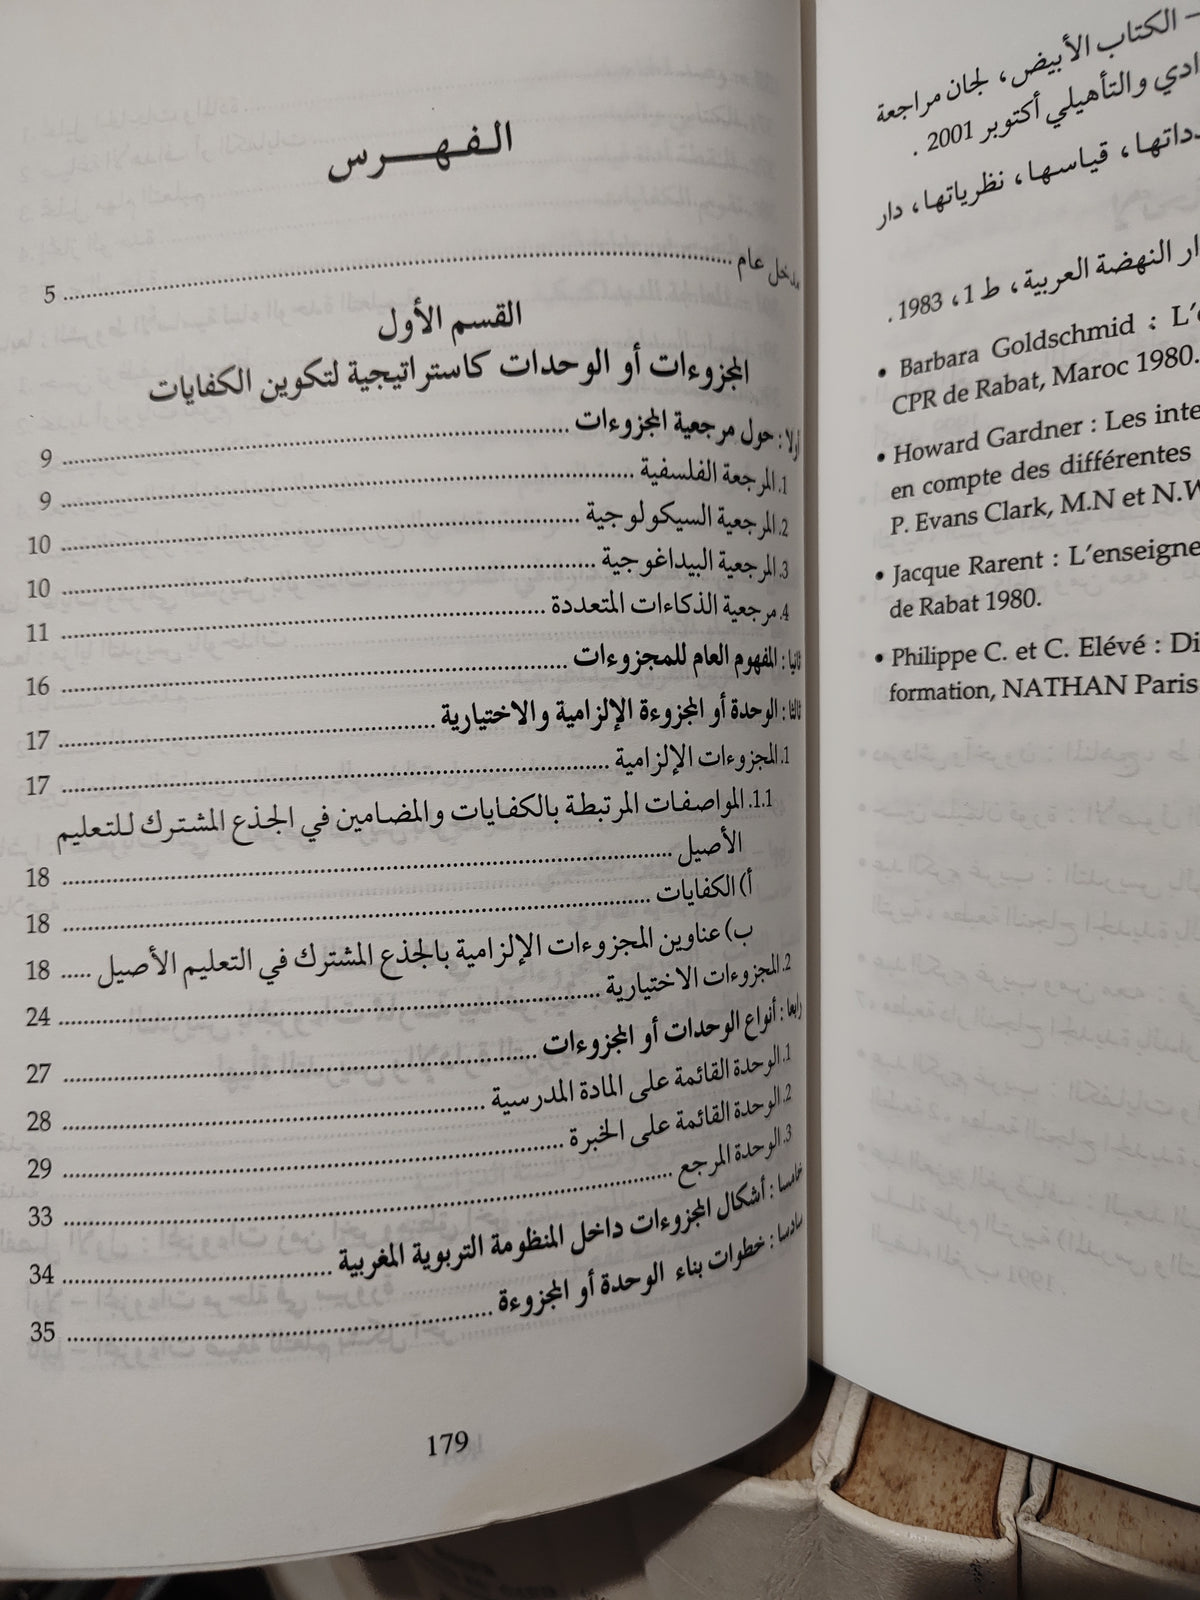 الفهرس
مدخل عام 5
القسم الأول
المجزوءات أو الوحدات كاستراتيجية لتكوين الكفايات
أولا : حول مرجعية المجزوءات 9
1. المرجعة الفلسفية 9
2. المرجعية السيكولوجية 10
3. المرجعية البيداغوجية 10
4. مرجعية الذكاءات المتعددة 11
ثانيا : المفهوم العام للمجزوءات 16
ثالثا : الوحدة أو المجزوءة الإلزامية والاختيارية 17
1. المجزوءات الإلزامية 17
1.1. المواصفات المرتبطة بالكفايات والمضامين في الجذع المشترك للتعليم
الأصيل 18
أ) الكفايات 18
ب) عناوين المجزوءات الإلزامية بالجذع المشترك في التعليم الأصيل 18
2. المجزوءات الاختيارية 24
رابعا : أنواع الوحدات أو المجزوءات 27
1. الوحدة القائمة على المادة المدرسية 28
2. الوحدة القائمة على الخبرة 29
3. الوحدة المرجع 33
خامسا : أشكال المجزوءات داخل المنظومة التربوية المغربية 34
سادسا : خطوات بناء الوحدة أو المجزوءة 35
179
- الكتاب الأبيض، لجان مراجعة
والتأهيلي أكتوبر 2001 .
قياسها، نظرياتها، دار
النهضة العربية، ط 1، 1983.
• Barbara Goldschmid :
CPR de Rabat, Maroc 1980.
• Howard Gardner : Les
en compte des différentes
P. Evans Clark, M.N et
• Jacque Rarent :
de Rabat 1980.
• Philippe C. et C. Elévé :
formation, NATHAN Paris